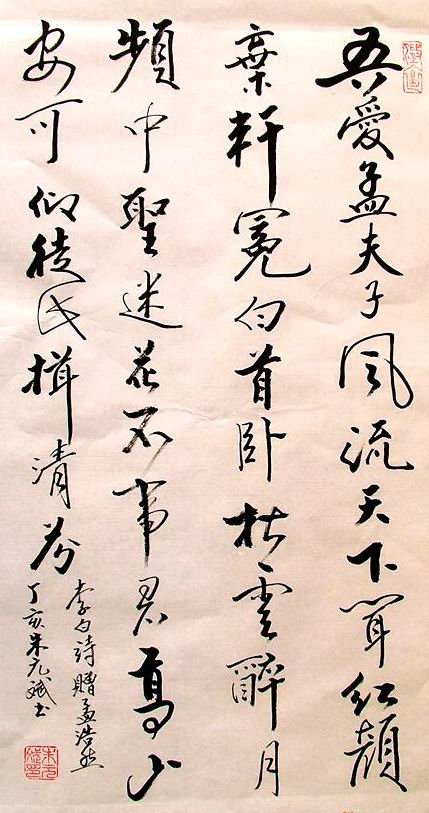 吾愛孟夫子風流天下聞紅顏
棄軒冕白首臥松雲醉月
頻中聖迷花不事君高山
安可仰徒此揖清芬
李白詩贈孟浩然
丁亥朱元斌書